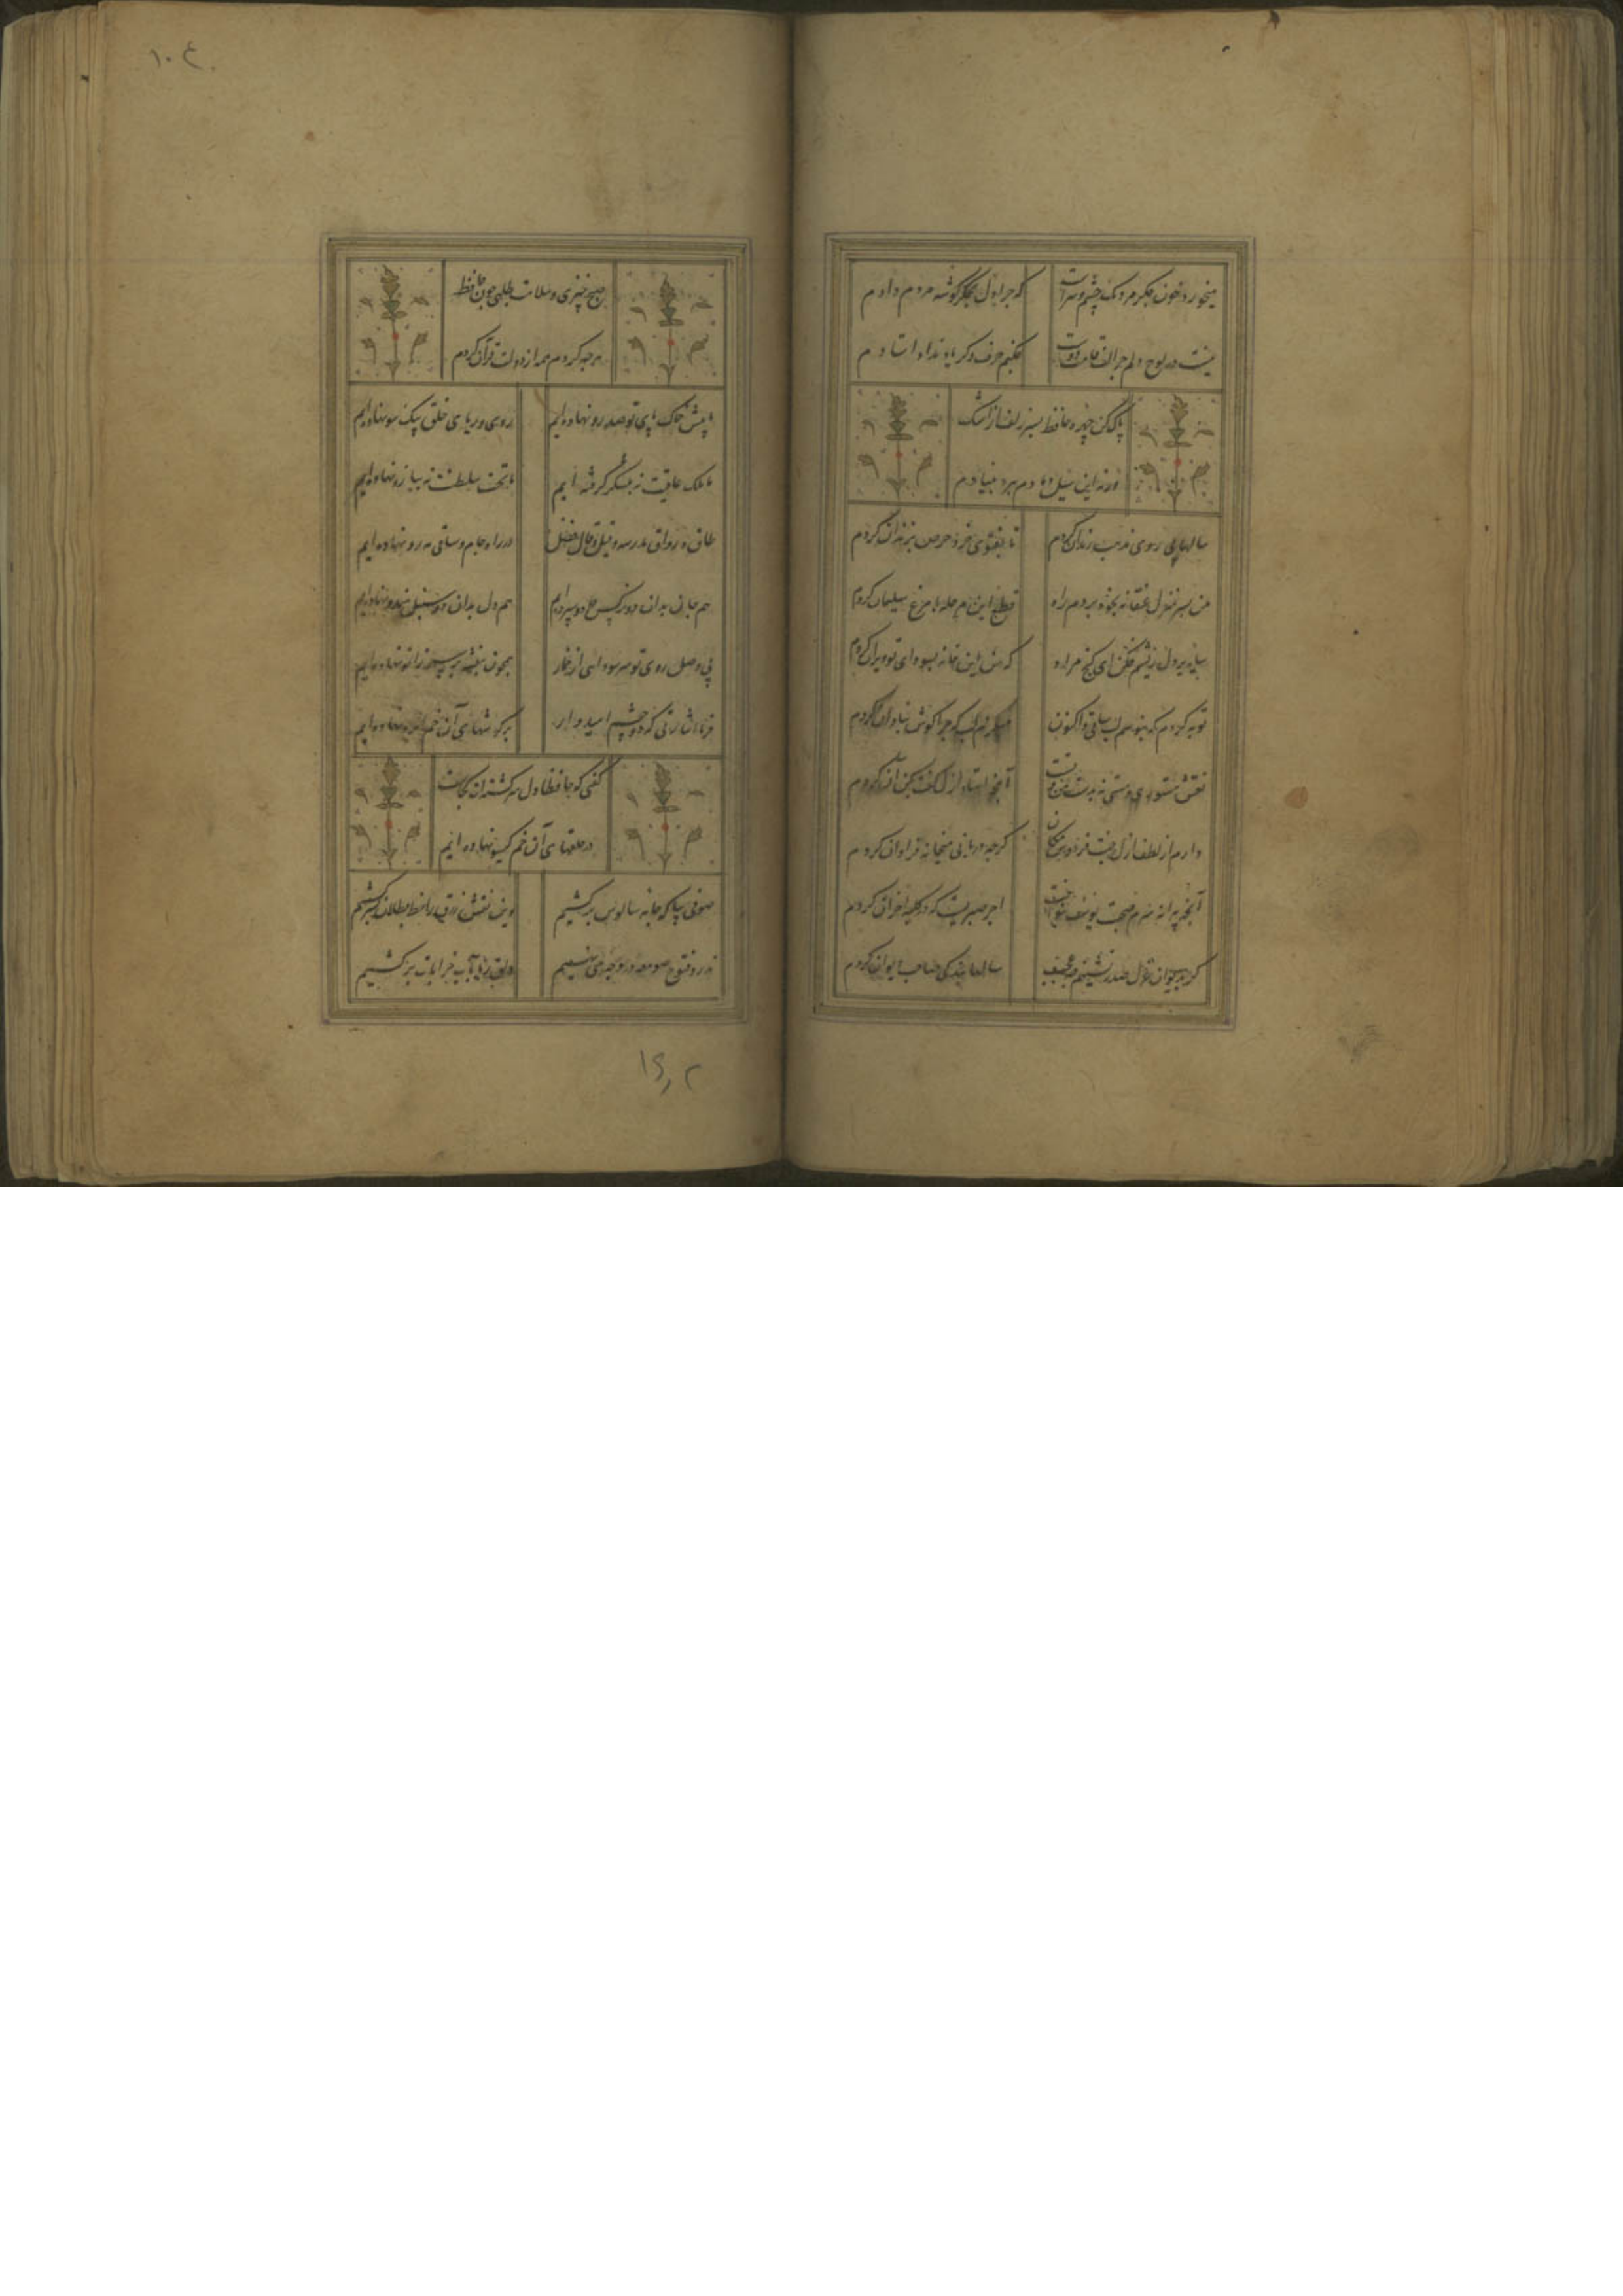 میخورد خون جگر مردمک چشم و سزاست
که چرا دل بجگرگوشه مردم دادم
نیست در لوح دلم جز الف قامت دوست
چکنم حرف دگر یاد نداد استادم
پاک کن چهره حافظ بسر زلف ز اشک
ورنه این سیل دمادم ببرد بنیادم
سالها پی روی مذهب رندان کردم
تا بفتوی خرد حرص بزندان کردم
من بسر منزل عنقا نه بخود بردم راه
قطع این مرحله با مرغ سلیمان کردم
سایه بر دل ریشم فکن ای گنج مراد
که من این خانه بسودای تو ویران کردم
توبه کردم که نبوسم لب ساقی و اکنون
میگزم لب که چرا گوش بنادان کردم
نقش مستوری و مستی نه بدست من و تست
آنچه استاد ازل گفت بکن آن کردم
دارم از لطف ازل جنت فردوس مکان
گرچه دربانی میخانه فراوان کردم
آنکه پیرانه سرم صحبت یوسف بنواخت
اجر صبریست که در کلبه احزان کردم
گر بدیوان غزل صدر نشینم چه عجب
سالها بندگی صاحب دیوان کردم
۱۰۴
صبح خیزی و سلامت طلبی چون حافظ
هرچه کردم همه از دولت قرآن کردم
ما پیش خاک پای تو صد رو نهاده ایم
روی و ریای خلق بیک سو نهاده ایم
ما ملک عافیت نه بلشکر گرفته ایم
ما تخت سلطنت نه ببازو نهاده ایم
طاق و رواق مدرسه و قیل و قال فضل
در راه جام و ساقی مه رو نهاده ایم
هم جان بدان دو نرگس جادو سپرده ایم
هم دل بدان دو سنبل هندو نهاده ایم
بی وصل روی تو سر سودایی از خمار
همچون بنفشه بر سر زانو نهاده ایم
فرما اشارتی که دو چشم امیدوار
بر گوشهای آن خم ابرو نهاده ایم
گفتی که حافظا دل سرگشته ات کجاست
در حلقهای آن خم گیسو نهاده ایم
صوفی بیا که جامه سالوس برکشیم
وین نقش زرق را خط بطلان بسر کشیم
نذر و فتوح صومعه در وجه می نهیم
دلق ریا بآب خرابات برکشیم